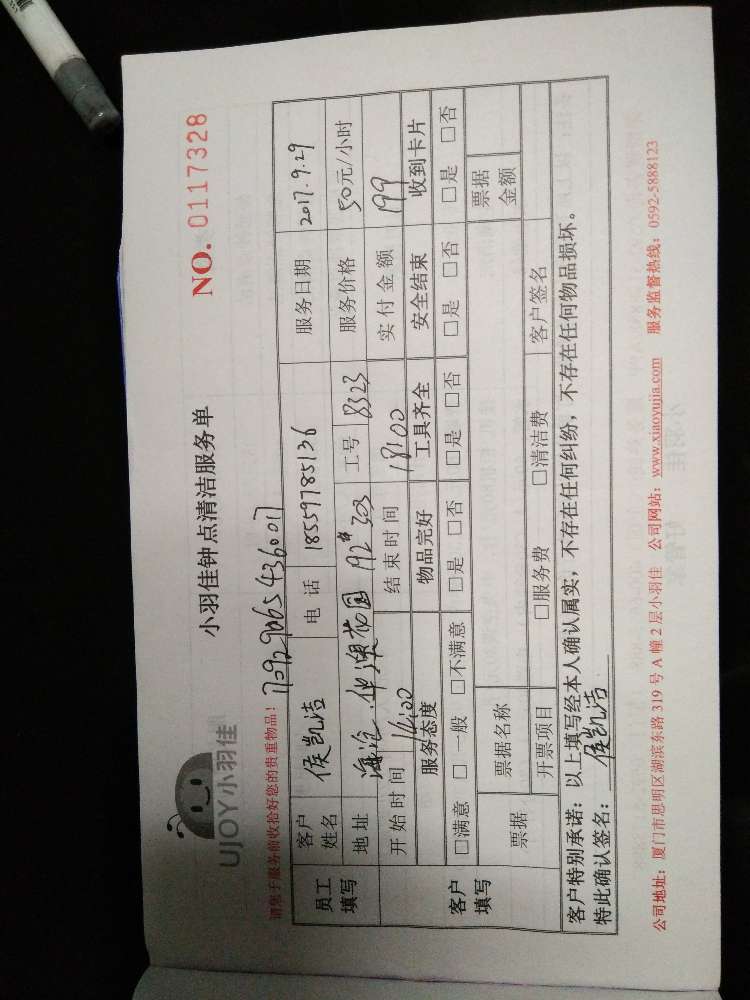 UJOY小羽佳
小羽佳钟点清洁服务单
NO. 0117328
请您于服务前收拾好您的贵重物品!
员工填写
客户姓名 侯凯洁 电话 18559785136 服务日期 2017.9.29
地址 海沧 A2# 303 工号 8323 服务价格 50元/小时
开始时间 14:00 结束时间 18:00 实付金额 199
客户填写
服务态度 物品完好 工具齐全 安全结束 收到卡片
□满意 □一般 □不满意 □是 □否 □是 □否 □是 □否 □是 □否
票据 票据名称 票据金额
开票项目 □服务费 □清洁费 客户签名
客户特别承诺:以上填写经本人确认属实,不存在任何纠纷,不存在任何物品损坏。
特此确认签名: 侯凯洁
公司地址:厦门市思明区湖滨东路 319 号 A 幢 2 层小羽佳 公司网站:www.xiaoyujia.com 服务监督热线:0592-5888123